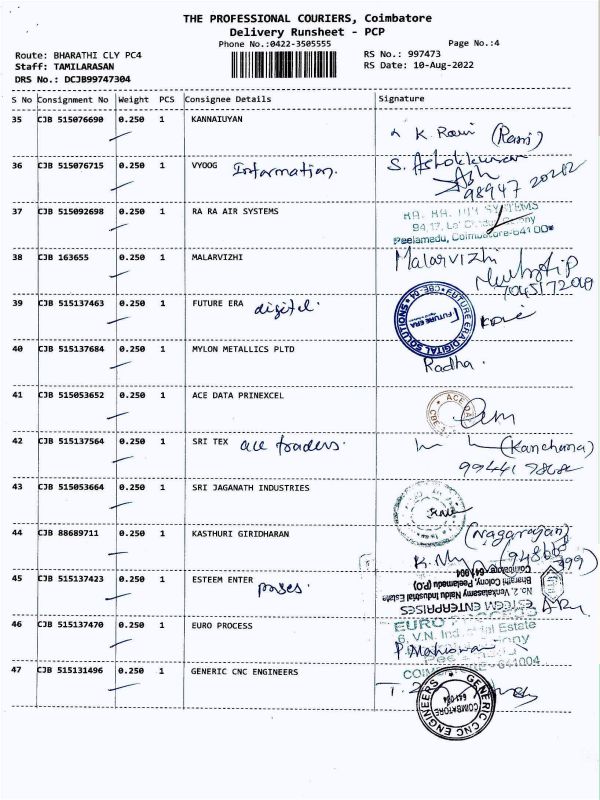 THE PROFESSIONAL COURIERS, Coimbatore
Delivery Runsheet - PCP
Phone No.:0422-3505555
Page No.:4
Route: BHARATHI CLY PC4
RS No.: 997473
Staff: TAMILARASAN
RS Date: 10-Aug-2022
DRS No.: DCJB99747304
S No Consignment No Weight PCS Consignee Details Signature
35 CJB 515076690 0.250 1 KANNAIUYAN
K. Ravi (Ravi)
36 CJB 515076715 0.250 1 VYOOG Information.
S. Ashokkumar
98947 20202
37 CJB 515092698 0.250 1 RA RA AIR SYSTEMS
RA. RA. AIR SYSTEMS
Peelamedu, Coimbatore-641 00
38 CJB 163655 0.250 1 MALARVIZHI
Malarvizhi
39 CJB 515137463 0.250 1 FUTURE ERA digital.
FUTURE ERA DIGITAL SOLUTIONS * CBE-04 *
FUTURE ERA
40 CJB 515137684 0.250 1 MYLON METALLICS PLTD
Radha.
41 CJB 515053652 0.250 1 ACE DATA PRINEXCEL
ACE DA
42 CJB 515137564 0.250 1 SRI TEX ace traders.
(Kanchana)
43 CJB 515053664 0.250 1 SRI JAGANATH INDUSTRIES
44 CJB 88689711 0.250 1 KASTHURI GIRIDHARAN
(Nagarajan)
45 CJB 515137423 0.250 1 ESTEEM ENTER prises.
ESTEEM ENTERPRISES
No. 2, Venkatasamy Naidu Industrial Estate
Bharathi Colony, Peelamedu (P.O)
Coimbatore 641 004
46 CJB 515137470 0.250 1 EURO PROCESS
EURO
6, V.N. Industrial Estate
641004
47 CJB 515131496 0.250 1 GENERIC CNC ENGINEERS
GENERIC CNC ENGINEERS
COIMBATORE
641-004